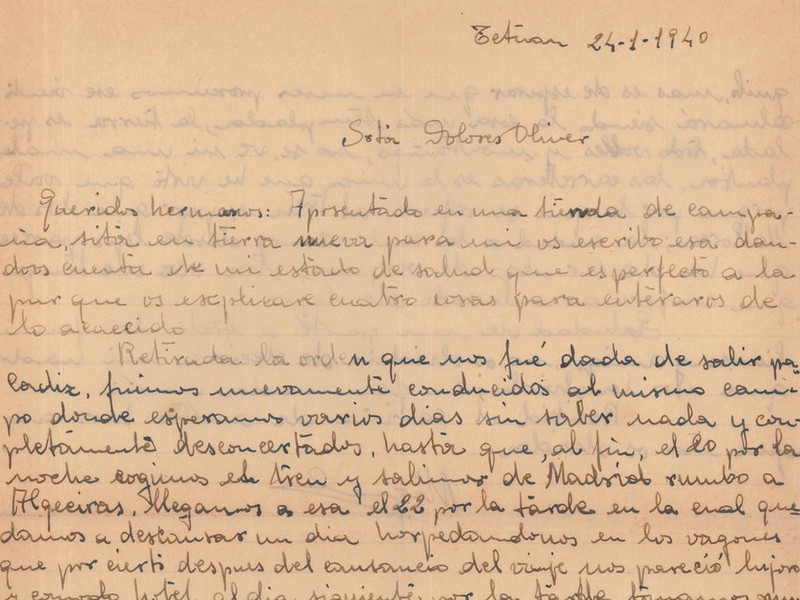 Tetuan 24-1-1940
Srta Dolores Oliver
Queridos hermanos: Aposentado en una tienda de campa-
ña, sita en tierra nueva para mi os escribo esa dan-
doos cuenta de mi estado de salud que es perfecto a la
par que os esplicare cuatro cosas para enteraros de
lo acaecido
Retirada la orden que nos fué dada de salir pa
Cadiz, fuimos nuevamente conducidos al mismo cam-
po donde esperamos varios dias sin saber nada y com-
pletamente desconcertados, hasta que, al fin, el 20 por la
noche cogimos el tren y salimos de Madrid rumbo a
Algeciras, llegamos a esa el 22 por la tarde en la cual que
damos a descansar un dia horpedandonos en los vagones
que por cierto despues del cansancio del viaje nos pareció lujoso
y comodo hotel, al dia siguiente por la tarde tomamos